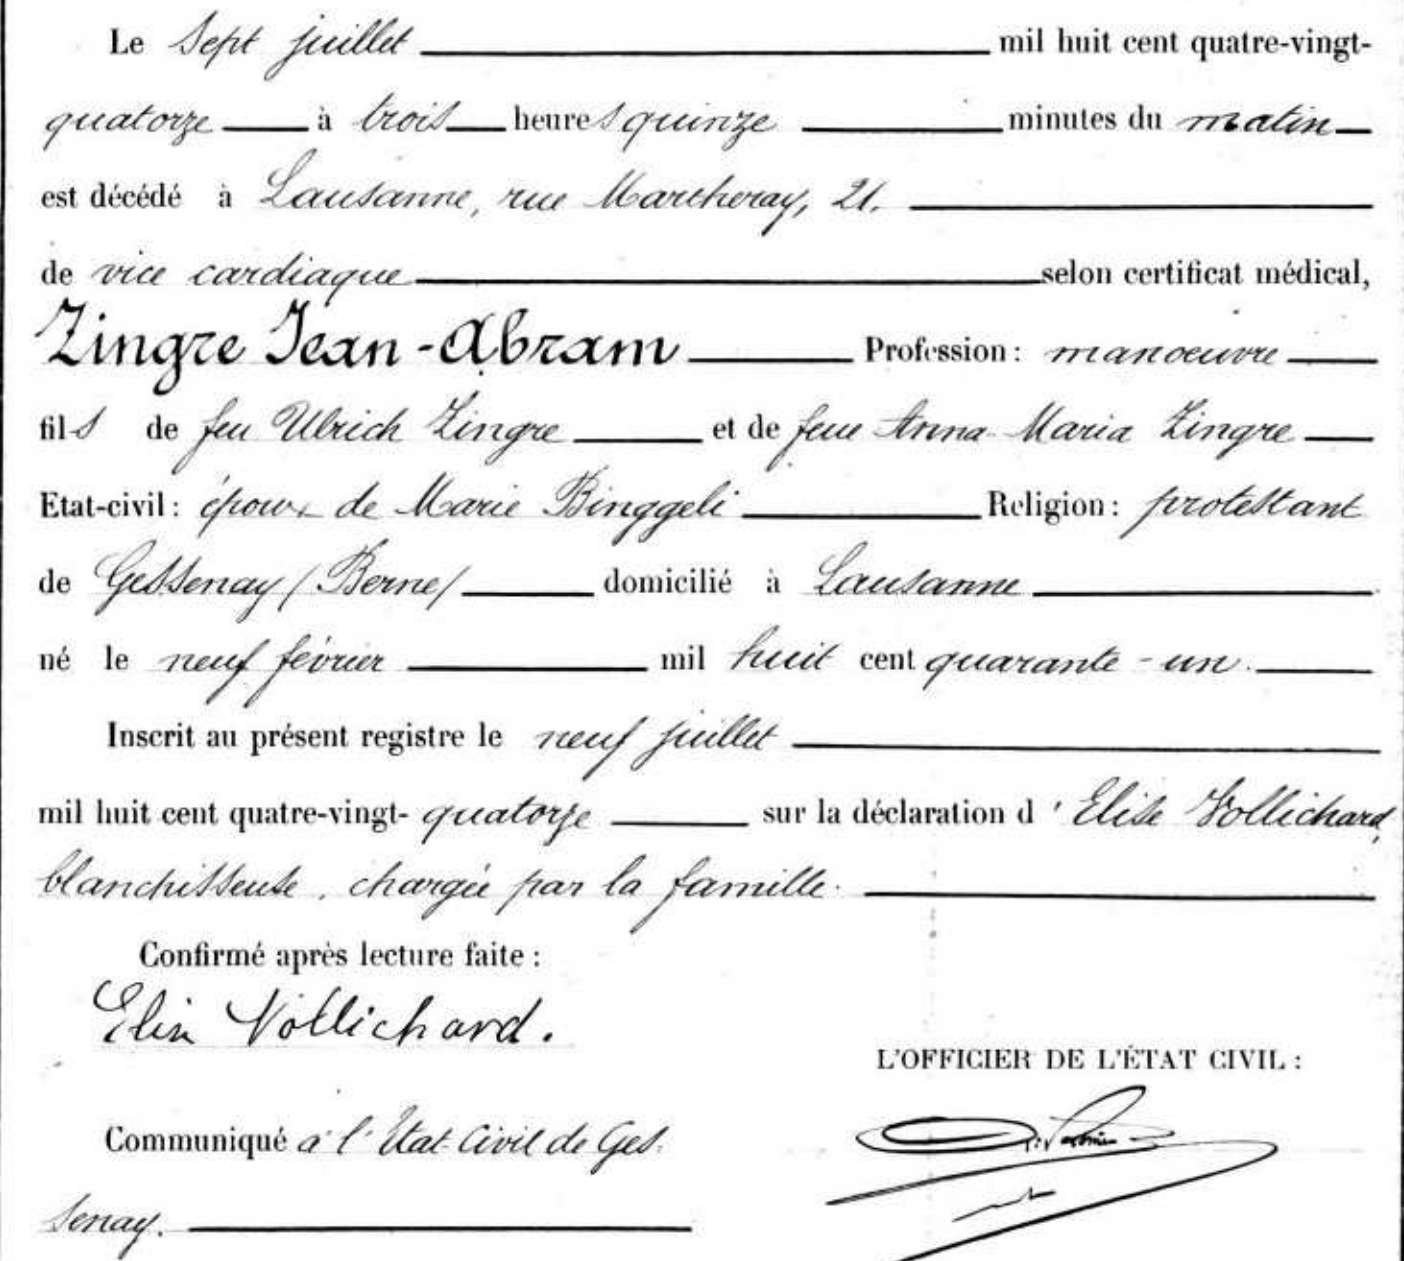 Le sept juillet mil huit cent quatre-vingt-
quatorze à trois heures quinze minutes du matin
est décédé à Lausanne, rue Martheray, 21.
de vice cardiaque selon certificat médical,
Zingre Jean-Abram Profession : manoeuvre
fils de feu Ulrich Zingre et de feue Anna-Maria Zingre
Etat-civil : époux de Marie Binggeli Religion : protestant
de Gessenay (Berne) domicilié à Lausanne
né le neuf février mil huit cent quarante-un.
Inscrit au présent registre le neuf juillet
mil huit cent quatre-vingt-quatorze sur la déclaration d'Elise Vollichard,
blanchisseuse, chargée par la famille.
Confirmé après lecture faite :
Elise Vollichard.
L'OFFICIER DE L'ÉTAT CIVIL :
Communiqué à l'Etat-Civil de Ges-
senay.